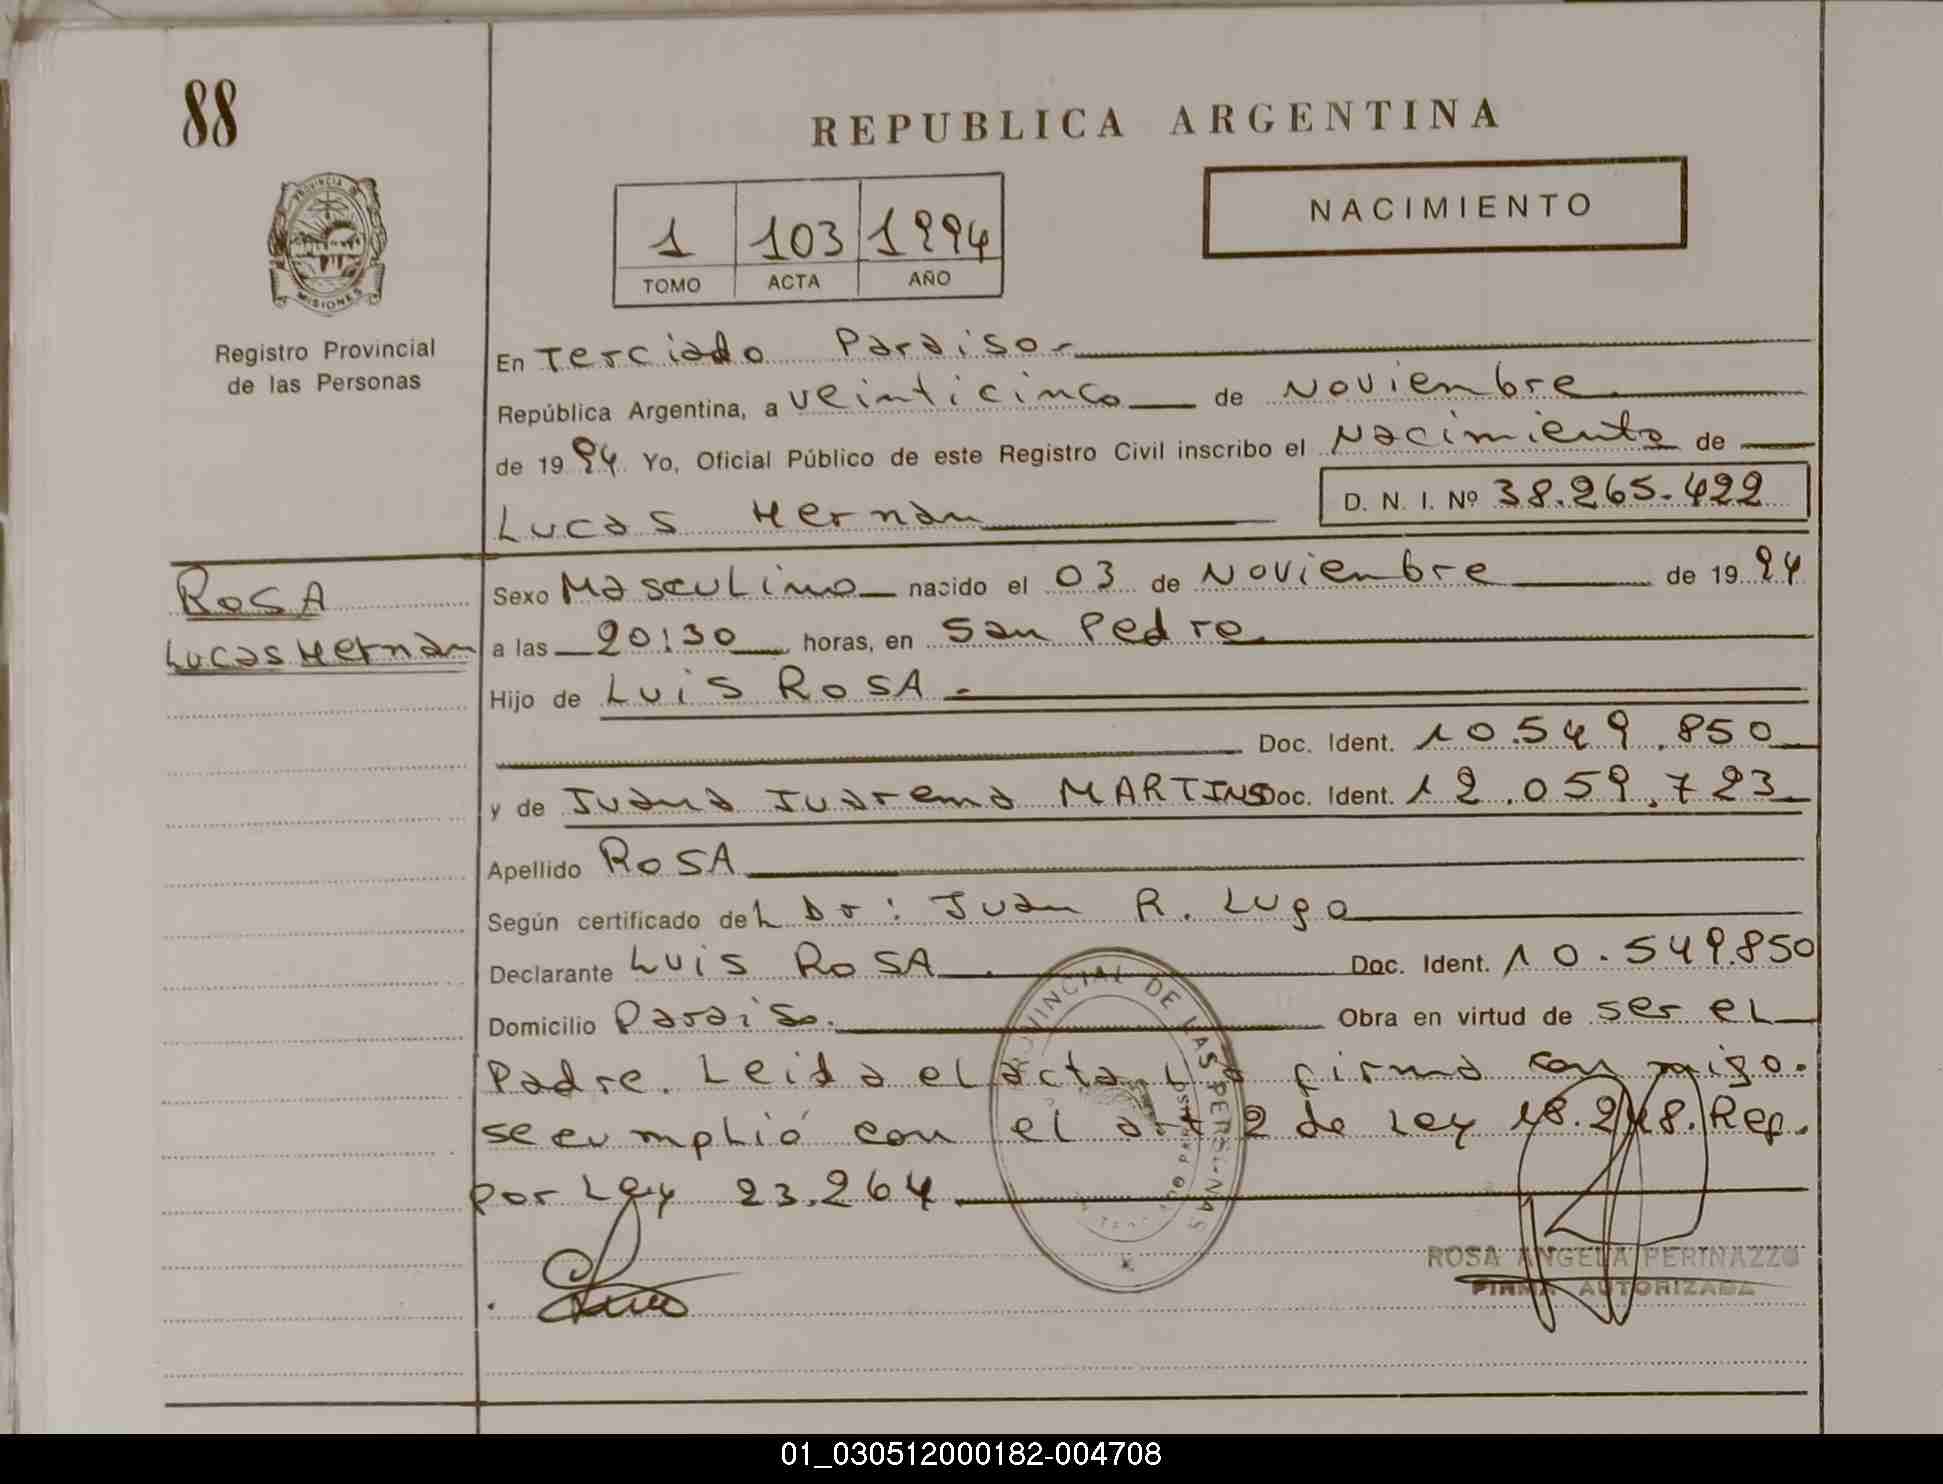 88
REPUBLICA ARGENTINA
NACIMIENTO
1 103 1994
TOMO ACTA AÑO
PROVINCIA DE
MISIONES
Registro Provincial
de las Personas
En Terciado Paraiso.-
República Argentina, a veinticinco de Noviembre
de 1994. Yo, Oficial Público de este Registro Civil inscribo el Nacimiento de
Lucas Hernan D. N. I. Nº 38.265.422
ROSA
Lucas Hernan
Sexo Masculino nacido el 03 de Noviembre de 1994
a las 20:30 horas, en San Pedro.
Hijo de Luis ROSA.-
Doc. Ident. 10.549.850
y de Juana Juarema MARTINS Doc. Ident. 12.059.723
Apellido ROSA
Según certificado del Dr: Juan R. Lugo
Declarante Luis ROSA Doc. Ident. 10.549.850
Domicilio Paraiso. Obra en virtud de ser el
Padre. Leida el acta, la firma con migo.
se cumplió con el art 2 de Ley 18.248. Rep.
por Ley 23.264.
PROVINCIAL DE LAS PERSONAS
ROSA ANGELA PERINAZZO
FIRMA AUTORIZADA
01_030512000182-004708